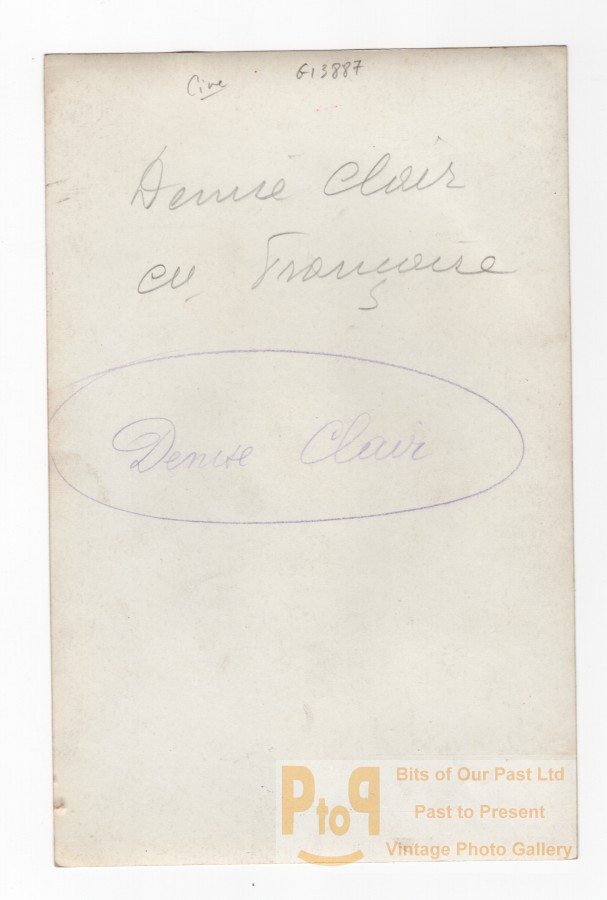 Cine G13887
Denise Clair
en Françoise
Denise Clair
PtoP
Bits of Our Past Ltd
Past to Present
Vintage Photo Gallery